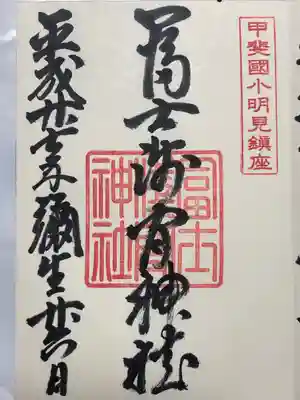 甲斐國小明見鎮座
冨士淺間神社
冨士淺間神社
平成廿七年彌生廿六日